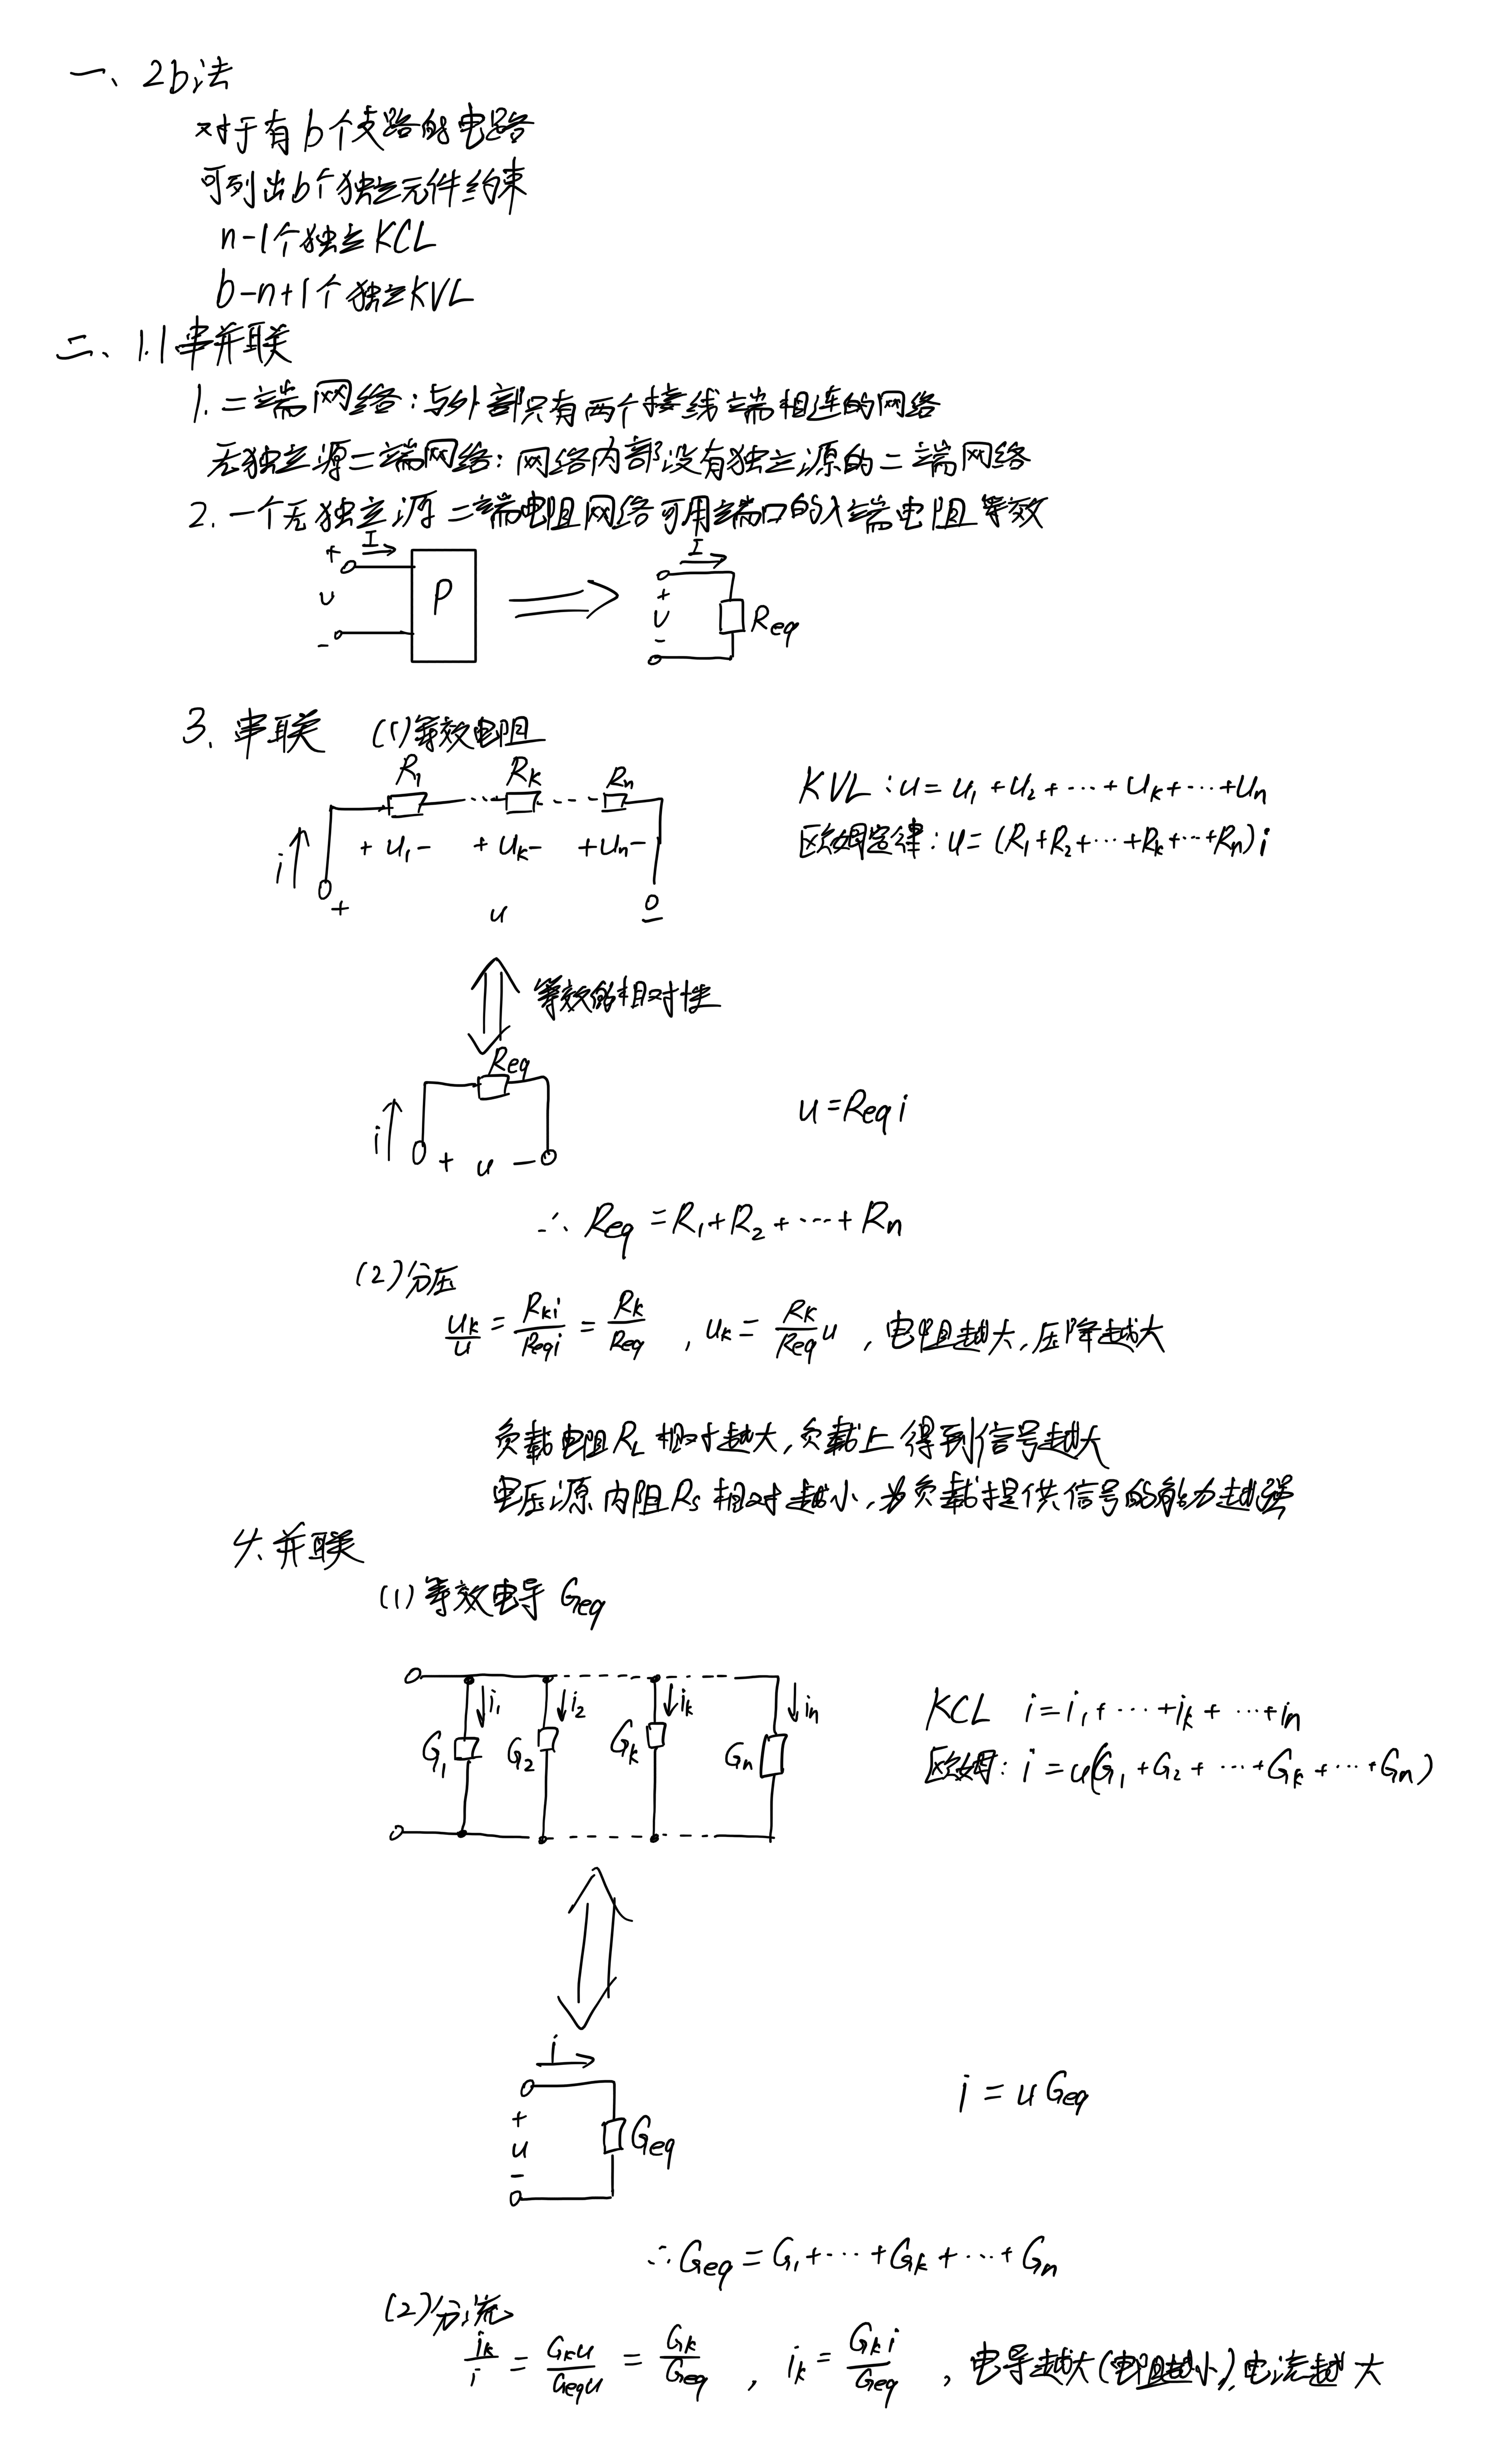 一、2b法
对于有b个支路的电路
可列出b个独立元件约束
n-1个独立KCL
b-n+1个独立KVL
二、1.1串并联
1.二端网络：与外部只有两个接线端相连的网络
无独立源二端网络：网络内部没有独立源的二端网络
2.一个无独立源二端电阻网络可用端口的入端电阻等效
+ I
u P
-
I
+ u - Req
3.串联 (1)等效电阻
R₁ Rk Rn
+ u₁ - + uk - + un -
i
+ u -
KVL：u=u₁+u₂+…+uk+…+un
欧姆定律：u=(R₁+R₂+…+Rk+…+Rn)i
等效的相对性
Req
i
+ u -
u=Req i
∴ Req=R₁+R₂+…+Rn
(2)分压
uk/u = Rki/Reqi = Rk/Req , uk = Rk/Req u , 电阻越大,压降越大
负载电阻RL相对越大,负载上得到信号越大
电压源内阻Rs相对越小,为负载提供信号的能力越强
4.并联
(1)等效电导 Geq
i₁ i₂ ik in
G₁ G₂ Gk Gn
KCL i=i₁+…+ik+…+in
欧姆：i=u(G₁+G₂+…+Gk+…+Gn)
i
+ u - Geq
i=uGeq
∴Geq=G₁+…+Gk+…+Gn
(2)分流
ik/i = Gku/Gequ = Gk/Geq , ik = Gk i/Geq , 电导越大(电阻越小),电流越大